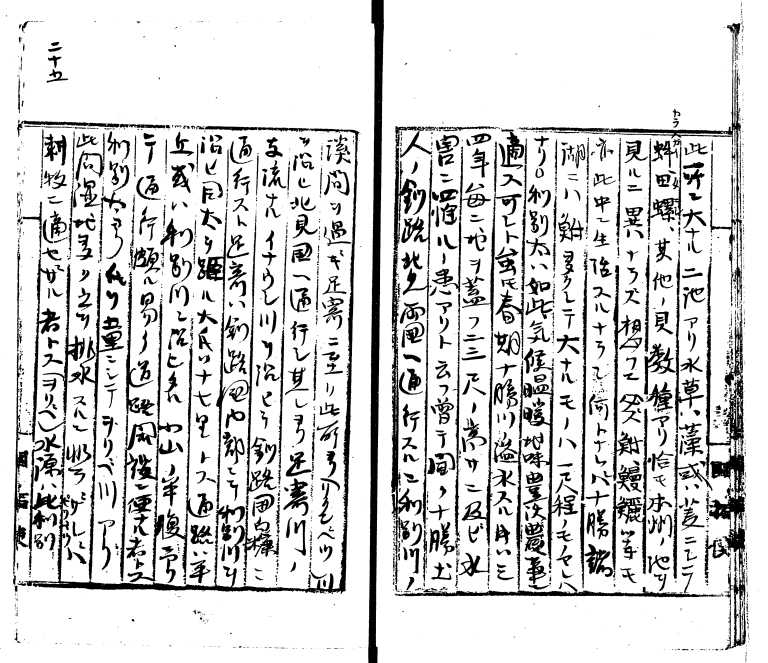 此所ニ大ナル二池アリ水草、藻或ハ菱ニシテ
蚌田螺、其他ノ貝数種アリ恰モ本州ノ池ヲ
見ルニ異ハナラズ想フニ 鮒鰻鱺等モ
亦此中ニ生活スルナラン何トナレバ十勝諸
湖ニハ鮒多クシテ大ナルモノハ一尺程ノモセシハ
ナリ○利別太ハ如此気候温暖地味豊沃農業
適ス可シト虽モ春期十勝川溢水スル時ハ三
四年毎ニ地ヲ蓋フ二三尺ノ高サニ及ビ水
害ニ罹ルノ患アリト云フ曽テ聞ク十勝土
人ノ釧路北見両国ヘ通行スルニ利別川ノ
二十五
渓間ヲ過ギ足寄ニ至リ此所ヨリ 川
ヲ沿ヒ北見国ヘ通行シ其レヨリ足寄川ノ
支流ナルイナウシ川ヲ沿ヒテ釧路国白糠ニ
通行スト足寄ハ釧路国内部ニテ利別川ヲ
沿ヒ同太ヲ距ル大凡ソ十七里トス通路ハ平
丘或ハ利別川ニ沿ヒタル小山ノ半腹ニ
テ通行頗ル易ク道路開設ニ便ナル者トス
利別太ヨリ 壱里ニシテヲリベ川アリ
此間湿地多ク 排水スルニ ガレバ
耕牧ニ適セザル者トス(ヲリベ)水源ハ此利別